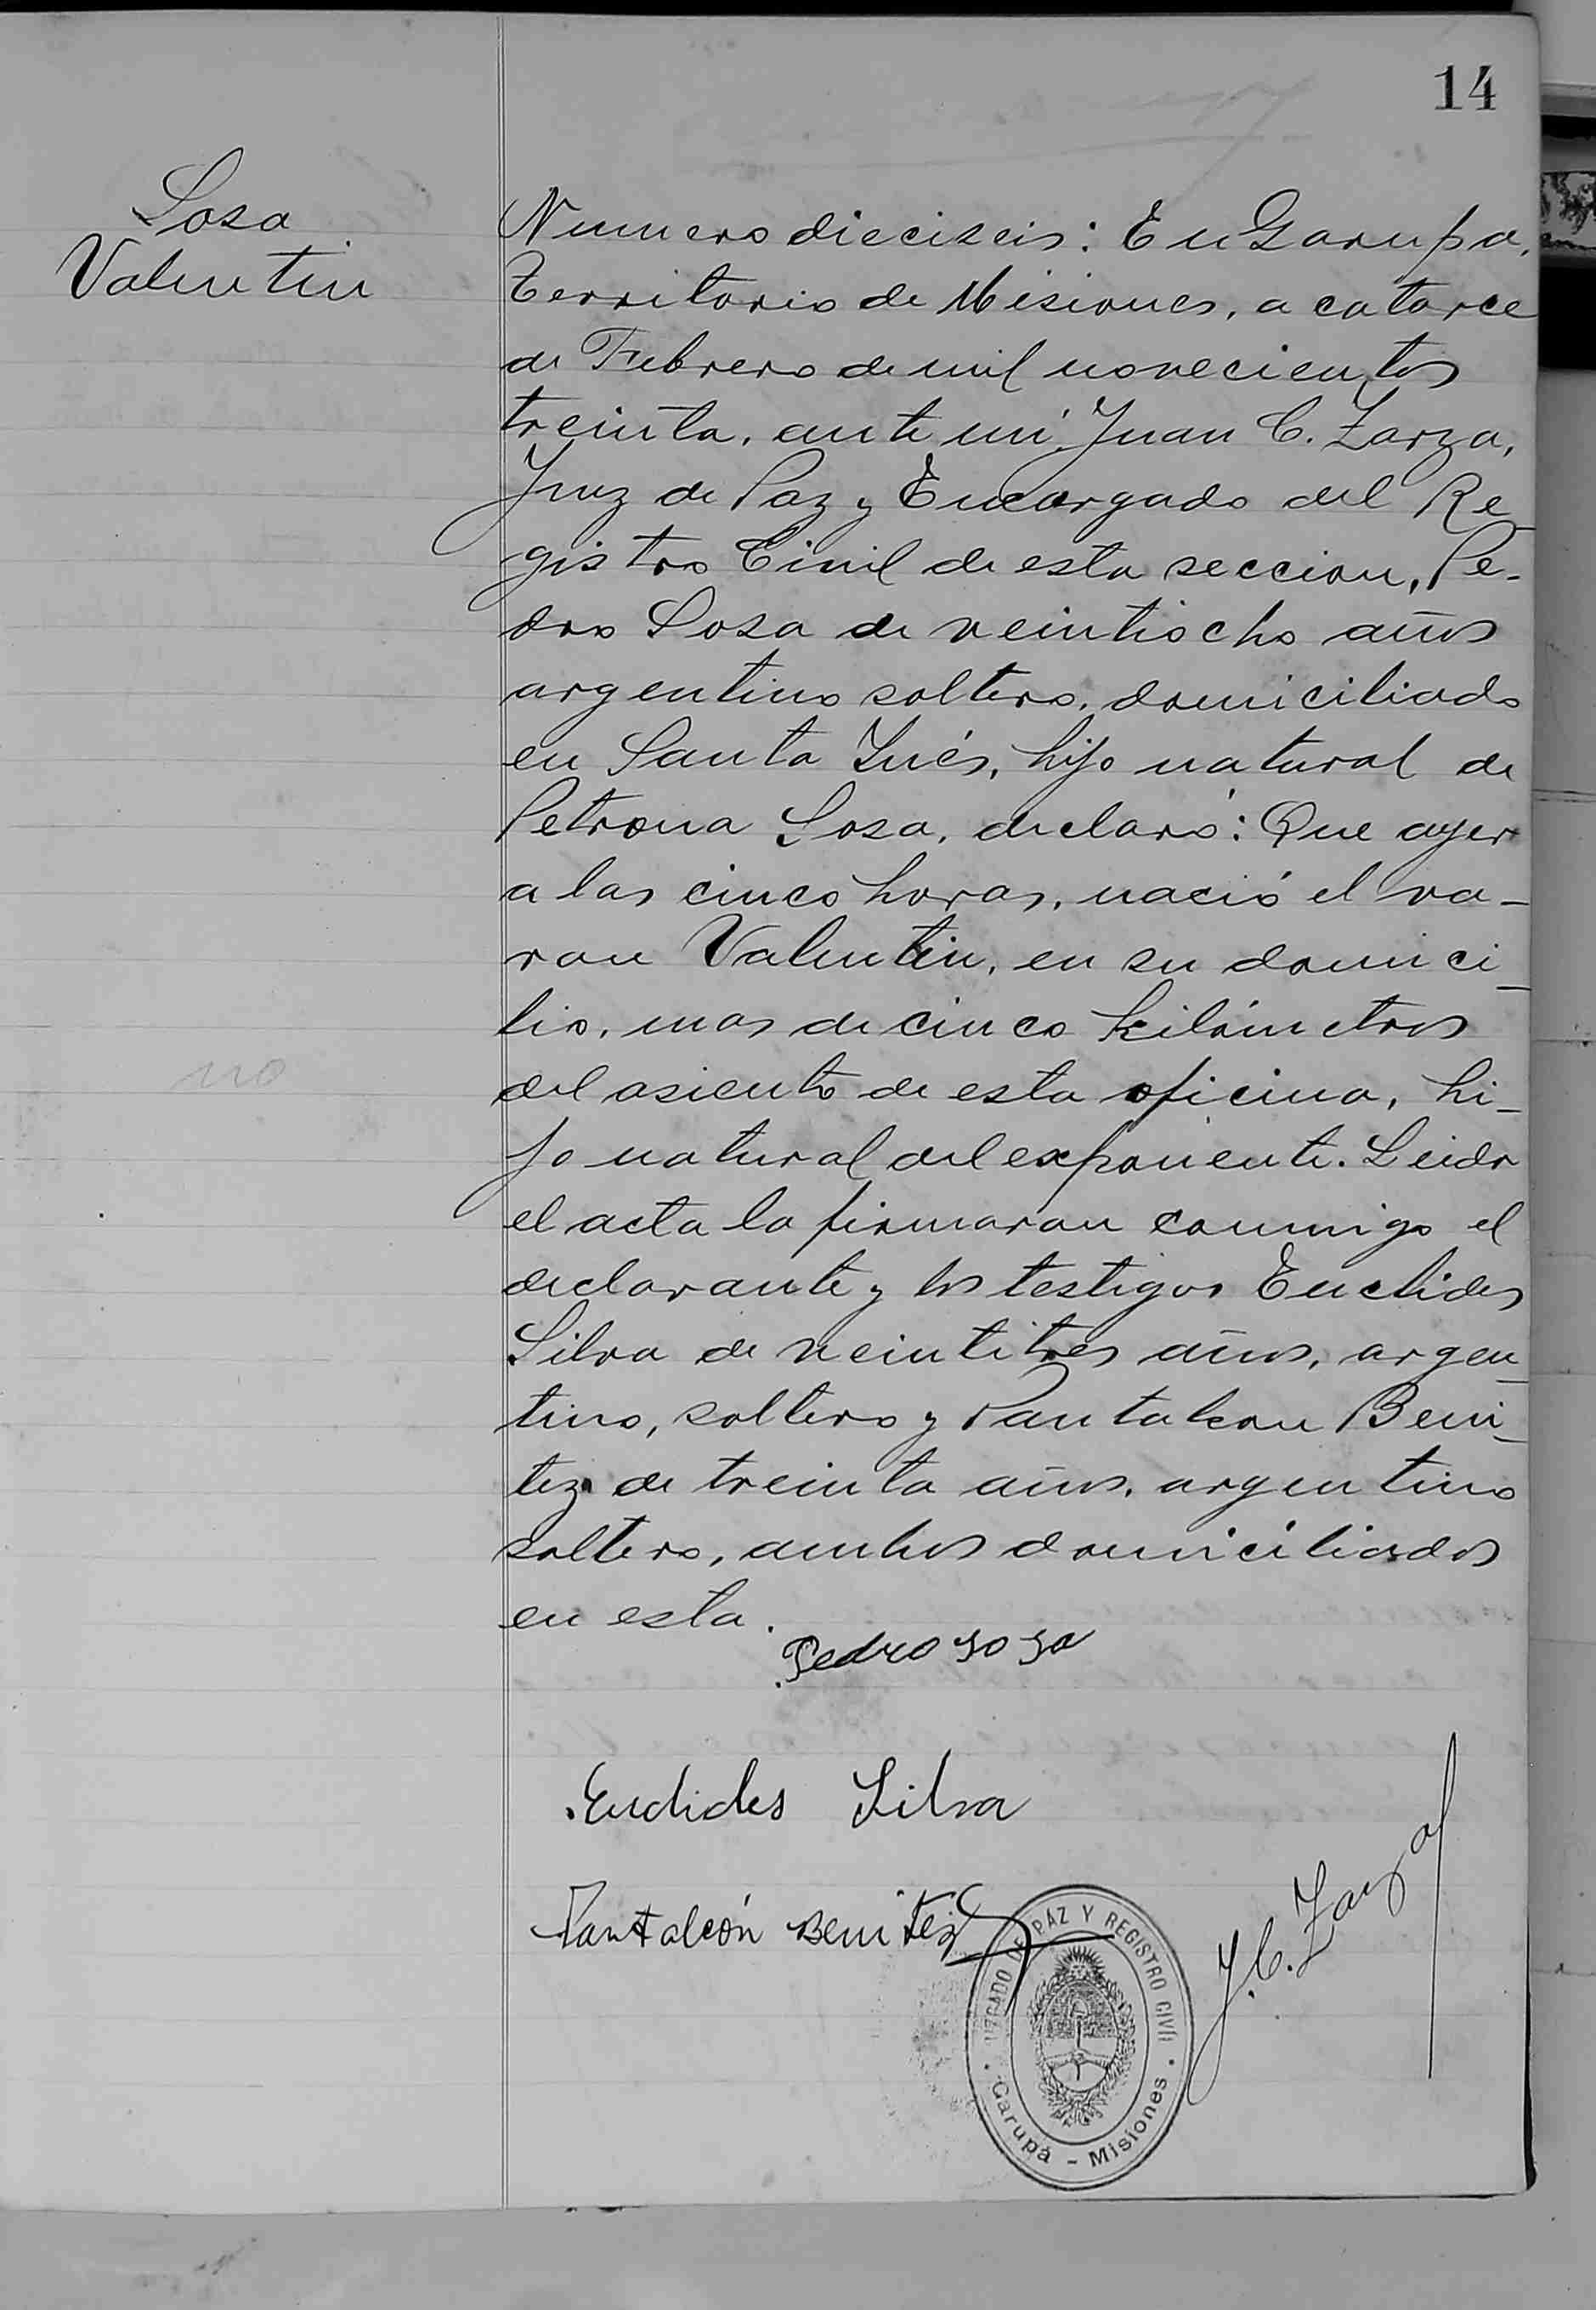 14
Sosa
Valentin
Numero dieciseis: En Garupa,
Territorio de Misiones, a catorce
de Febrero de mil novecientos
treinta, ante mi Juan C. Zarza,
Juez de Paz y Encargado del Re-
gistro Civil de esta seccion, Pe-
dro Sosa de veintiocho años
argentino soltero, domiciliado
en Santa Inés, hijo natural de
Petrona Sosa, declaró: Que ayer
a las cinco horas, nació el va-
ron Valentin, en su domici-
lio, mas de cinco kilómetros
del asiento de esta oficina, hi-
jo natural del exponente. Leida
el acta la firmaron conmigo el
declarante y los testigos Euclides
Silva de veintitres años, argen-
tino, soltero y Pantaleon Beni-
tez de treinta años, argentino
soltero, ambos domiciliados
en esta.
no
Pedro Sosa
Euclides Silva
Pantaleón Benitez
J. C. Zarza
UZGADO DE PAZ Y REGISTRO CIVIL
Garupá - Misiones